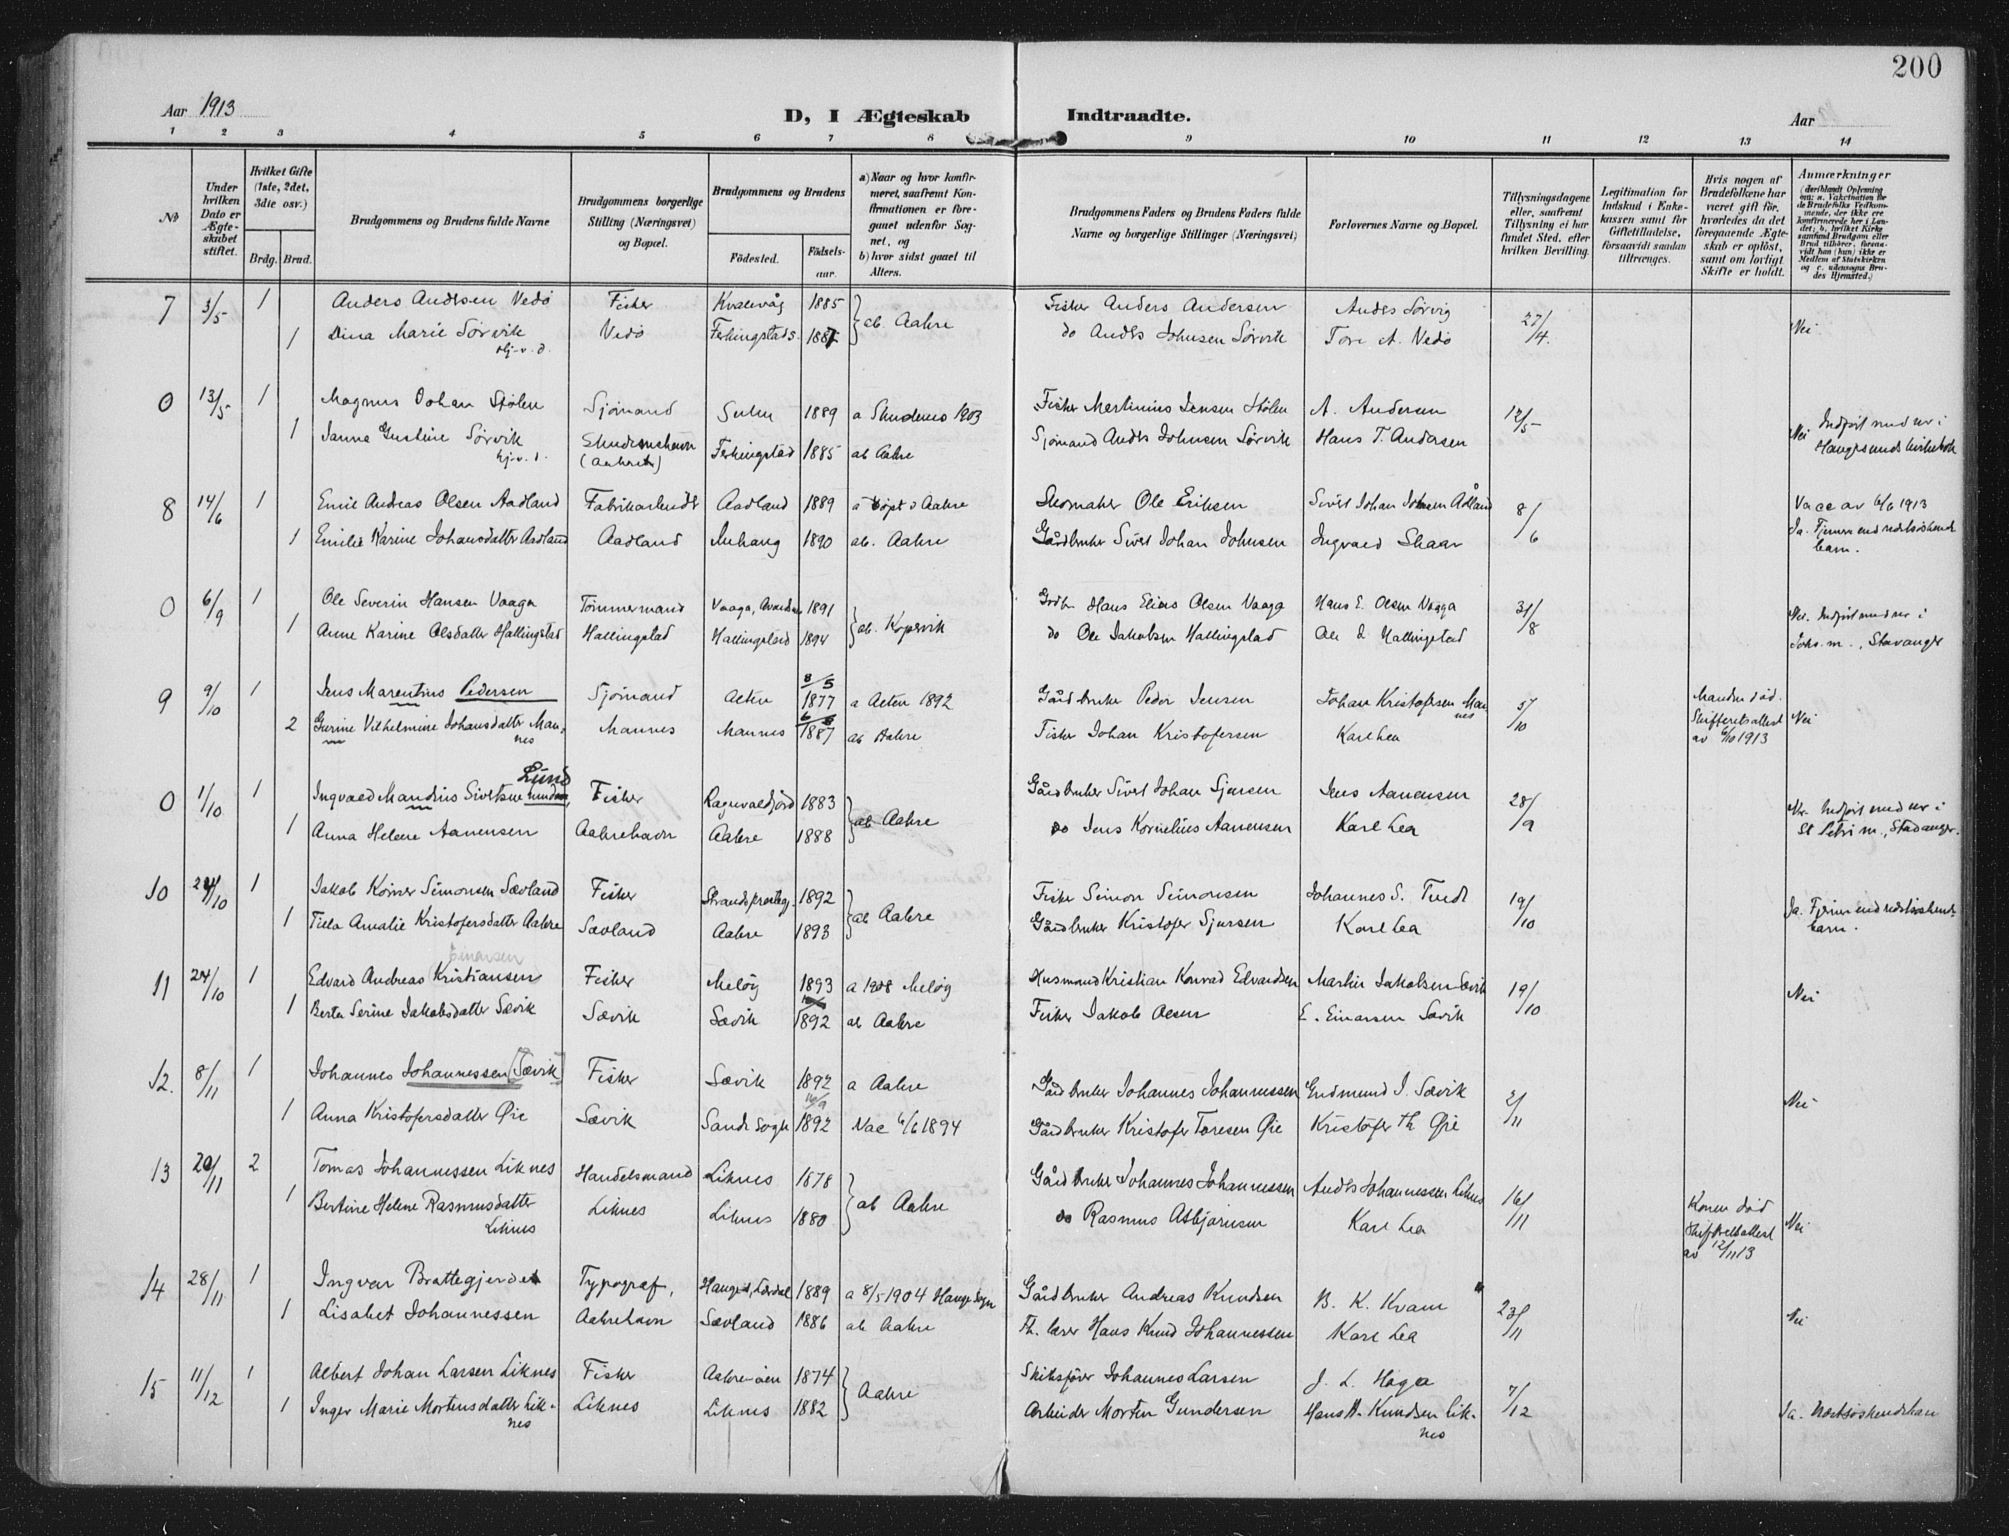 200
Aar 1913
D, I Ægteskab
Indtraadte.
Aar
1 2 3 4 5 6 7 8 9 10 11 12 13 14
№
Under hvilken Dato er Ægteskabet stiftet.
Hvilket Gifte (1ste, 2det, 3die osv.)
Brdg. Brud.
Brudgommens og Brudens fulde Navne
Brudgommens borgerlige Stilling (Næringsvei) og Bopæl.
Brudgommens og Brudens
Födested.
Födsels-aar.
a) Naar og hvor konfirmeret, saafremt Konfirmationen er foregaaet udenfor Sognet, og
b) hvor sidst gaaet til Alters.
Brudgommens Faders og Brudens Faders fulde Navne og borgerlige Stillinger (Næringsvei)
Forlovernes Navne og Bopæl.
Tillysningsdagene eller, saafremt Tillysning ei har fundet Sted, efter hvilken Bevilling.
Legitimation for Indskud i Enkekassen samt for Giftetilladelse, forsaavidt saadan tiltrænges.
Hvis nogen af Brudefolkene har været gift för, hvorledes da det foregaaende Ægteskab er oplöst, samt om lovligt Skifte er holdt.
Anmærkninger
7 3/5 1 Anders Andersen Vedö Fisker Kvalevåg 1885 Fisker Anders Andersen Anders Sörvig 27/4
1 Dina Marie Sörvik Vedö Ferkingstad 1887 ab. Aakre do Anders Johnsen Sörvik Tore A. Vedö Nei
0 13/5 1 Magnus Johan Stölen Sjömand 1889 a Skudenes 1903 Fisker Martinius Jensen Stölen A. Andersen 12/5
1 Janna Gustine Sörvik Skudeneshavn Ferkingstad 1885 ab Aakre Sjömand Anders Johnsen Sörvik Hans T. Andersen Nei Indfört nedner i Haugesunds kirkebok
8 14/6 1 Emil Andreas Olsen Aadland Fabrikarbeider Aadland 1889 a Aakre Skomaker Ole Eriksen Sivert Johan Johnsen Ådland 8/6 Vacc av 6/6 1913
1 Emilie Karine Johansdatter Aadland Aadland 1890 ab. Aakre Gårdbruker Sivert Johan Johnsen Ingvald Skaar Ja. Fjernere end nestsöskendebarn.
0 6/9 1 Ole Severin Hansen Vaaga Tömmermand Vaaga, Avaldsnes 1891 Hans Elias Olsen Vaaga Hans E. Olsen Vaaga 31/8
1 Anne Karine Olsdatter Hallingstad Hallingstad Hallingstad 1894 ab. Kopervik do Ole Jakobsen Hallingstad Nei. Indfört nedner i Joh. m., Stavanger
9 9/10 1 Jens Marentius Pedersen Sjömand 8/5 1877 1892 Gårdbruker Peder Jensen Johan Kristofersen Mannes 5/10 Manden död. Skifteretsattest av 6/10 1913
2 Gurine Vilhelmine Johansdatter Mannes Mannes Mannes 1887 ab Aakre Fisker Johan Kristofersen Karl Lea Nei
0 1/10 1 Ingvald Mandius Sivertsen Lund Fisker Ragnvaldsfjord 1883 Gårdbruker Sivert Johan Sjursen Jens Aanensen 28/9
1 Anna Helene Aanensen Aakrehavn Aakre 1888 ab Aakre do Jens Kornelius Aanensen Karl Lea Indfört nedner i St Petri m., Stavanger.
10 24/10 1 Jakob Korner Simonsen Sævland Fisker 1892 Fisker Simon Simonsen Johannes S. 19/10
1 Tilla Amalie Kristofersdatter Aakre Sævland Aakre 1893 ab Aakre Gårdbruker Kristofer Sjursen Karl Lea Ja. Fjernere end nestsöskendebarn.
Einarsen
11 24/10 1 Edvard Andreas Kristiansen Fisker Melöy 1893 a 1908 Melöy Husmand Kristian Konrad Edvardsen Martin Jakobsen Sævik 19/10
1 Berta Serine Jakobsdatter Sævik Sævik Sævik 1892 ab Aakre Fisker Jakob Olsen E. Einarsen Sævik Nei
12. 8/11 1 Johannes Johannessen [Sævik] Fisker Sævik 1892 a Aakre Gårdbruker Johannes Johannessen Gudmund J. Sævik 2/11
1 Anna Kristofersdatter Öie Sævik Sands Sogn 16/9 1892 Vac 6/6 1894 Gårdbruker Kristofer Toresen Öie Kristofer Th. Öie Nei
13 20/11 2 Tomas Johannessen Liknes Handelsmand Liknes 1878 Gårdbruker Johannes Johannessen Anders Johannessen Liknes 16/11
1 Bertine Helene Rasmusdatter Liknes Liknes Liknes 1880 ab Aakre do Rasmus Asbjörnsen Karl Lea Konen död Skifteretsattest av 12/11 13 Nei
14 28/11 1 Ingvar Brattegjerdet Typograf, 1889 a 8/5 1904 Hauge Sogn Gårdbruker Andreas Knudsen B. K. Kvam 23/11
1 Lisabet Johannessen Aakrehavn Sævland 1886 ab Aakre Th. lærer Hans Knud Johannessen Karl Lea Nei
15 11/12 1 Albert Johan Larsen Liknes Fisker 1874 Skibsförer Johannes Larsen J. L. Haga 7/12
1 Inger Marie Mortensdatter Liknes Liknes Liknes 1882 Aakre Arbeider Morten Gundersen Hans A. Knudsen Liknes Ja. Nestsöskendebarn